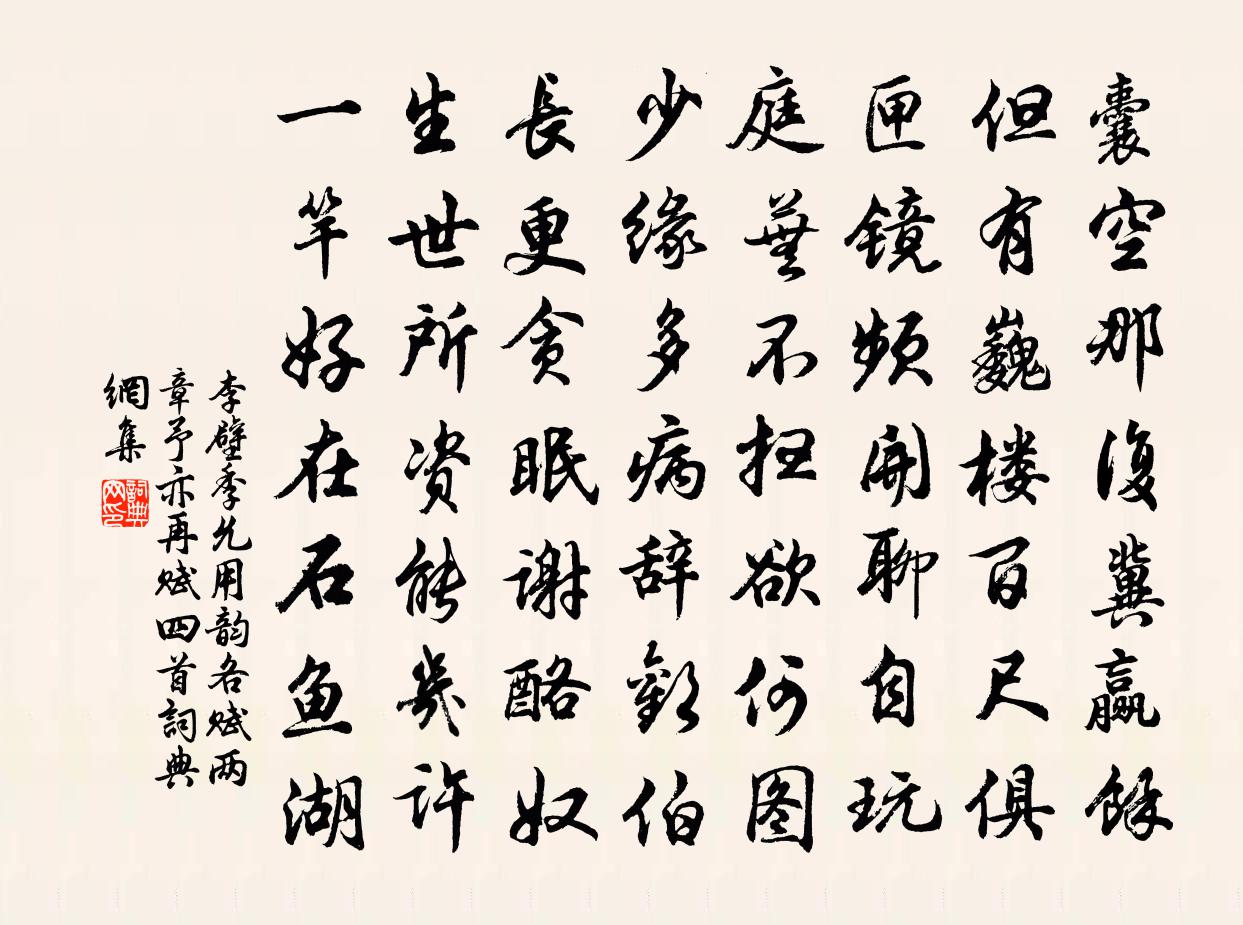 囊空那復冀贏餘
但有巍楼百尺俱
匣镜频開聊自玩
庭蕪不扫欲何图
少缘多病辞歡伯
長更贪眠谢酪奴
生世所资能幾许
一竿好在石鱼湖
李壁季允用韵各赋两
章予亦再赋四首詞典
網集
詞典网印